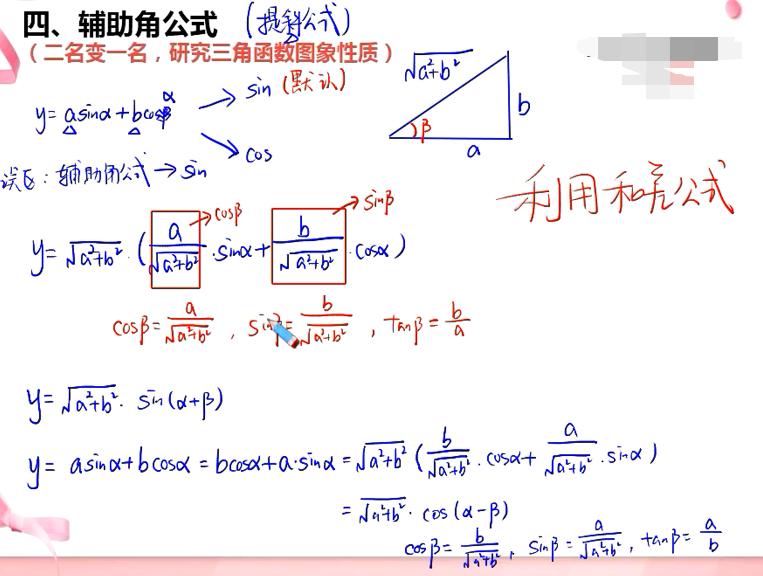 四、辅助角公式 (提斜公式)
(二名变一名，研究三角函数图象性质)
y=asinα+bcosα → sin (默认)
→ cos
√a²+b²
b
β
a
误区：辅助角公式→sin
利用和差公式
→cosβ →sinβ
y=√a²+b²·(a/√a²+b²·sinα+b/√a²+b²·cosα)
cosβ=a/√a²+b², sinβ=b/√a²+b², tanβ=b/a
y=√a²+b²·sin(α+β)
y=asinα+bcosα=bcosα+a·sinα=√a²+b²(b/√a²+b²·cosα+a/√a²+b²·sinα)
=√a²+b²·cos(α-β)
cosβ=b/√a²+b², sinβ=a/√a²+b², tanβ=a/b